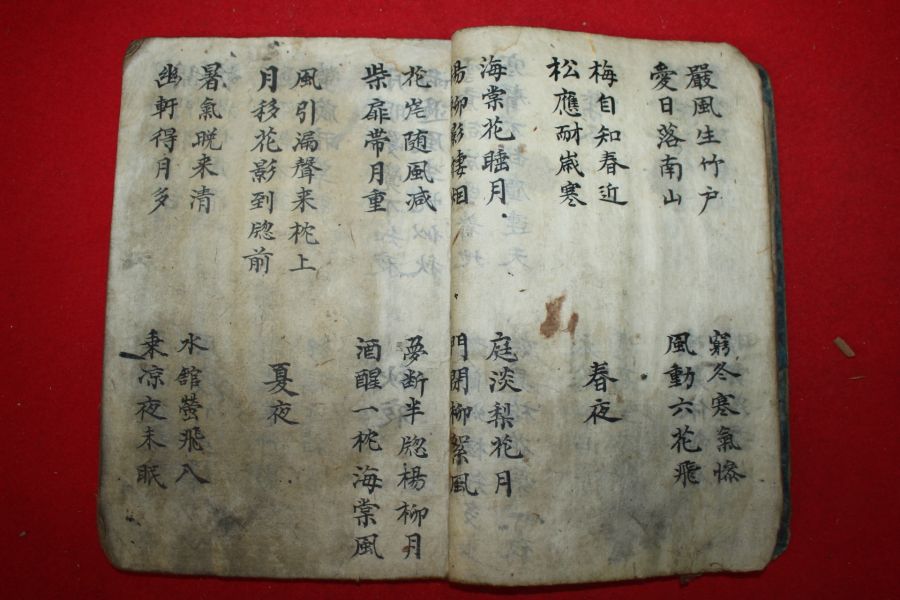 嚴風生竹戶
愛日落南山
窮冬寒氣慘
風動六花飛
梅自知春近
松應耐歲寒
春夜
海棠花睡月
楊柳影悽烟
庭淡梨花月
門閉柳絮風
花随風减
柴扉帶月重
夢断半窓楊柳月
酒醒一枕海棠風
風引漏聲来枕上
月移花影到窓前
夏夜
暑氣晩来清
幽軒得月多
水舘螢飛入
乗凉夜未眠